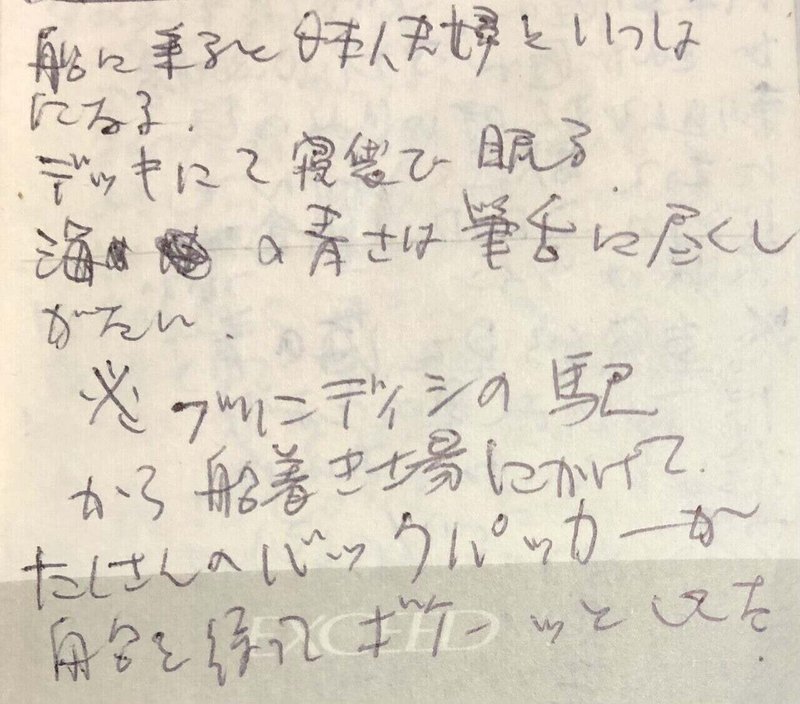 船に乗ると 日本人夫婦といっしょ
になる.
デッキにて寝袋で眠る.
海の青さは筆舌に尽くし
がたい.
※ ブリンディシの駅
から船着き場にかけて.
たくさんのバックパッカーが
船を待って ボケーッとしてた.
EXCEED